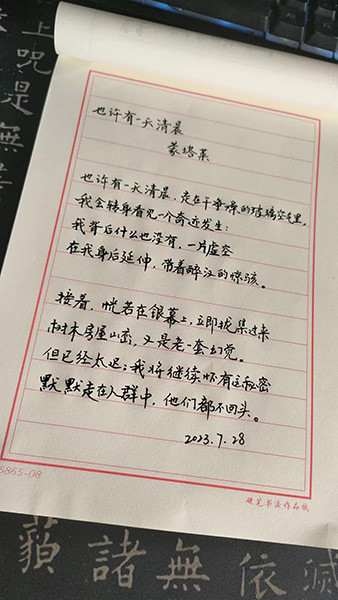 上咒是無等
也许有一天清晨
蒙塔莱
也许有一天清晨，走在干燥的玻璃空气里，
我会转身看见一个奇迹发生：
我背后什么也没有，一片虚空
在我身后延伸，带着醉汉的惊骇。
接着，恍若在银幕上，立即拢集过来
树木房屋山峦，又是老一套幻觉。
但已经太迟：我将继续怀有这秘密
默默走在人群中，他们都不回头。
2023.7.28
6865-08
硬笔书法作品纸
蘋諸無依滅